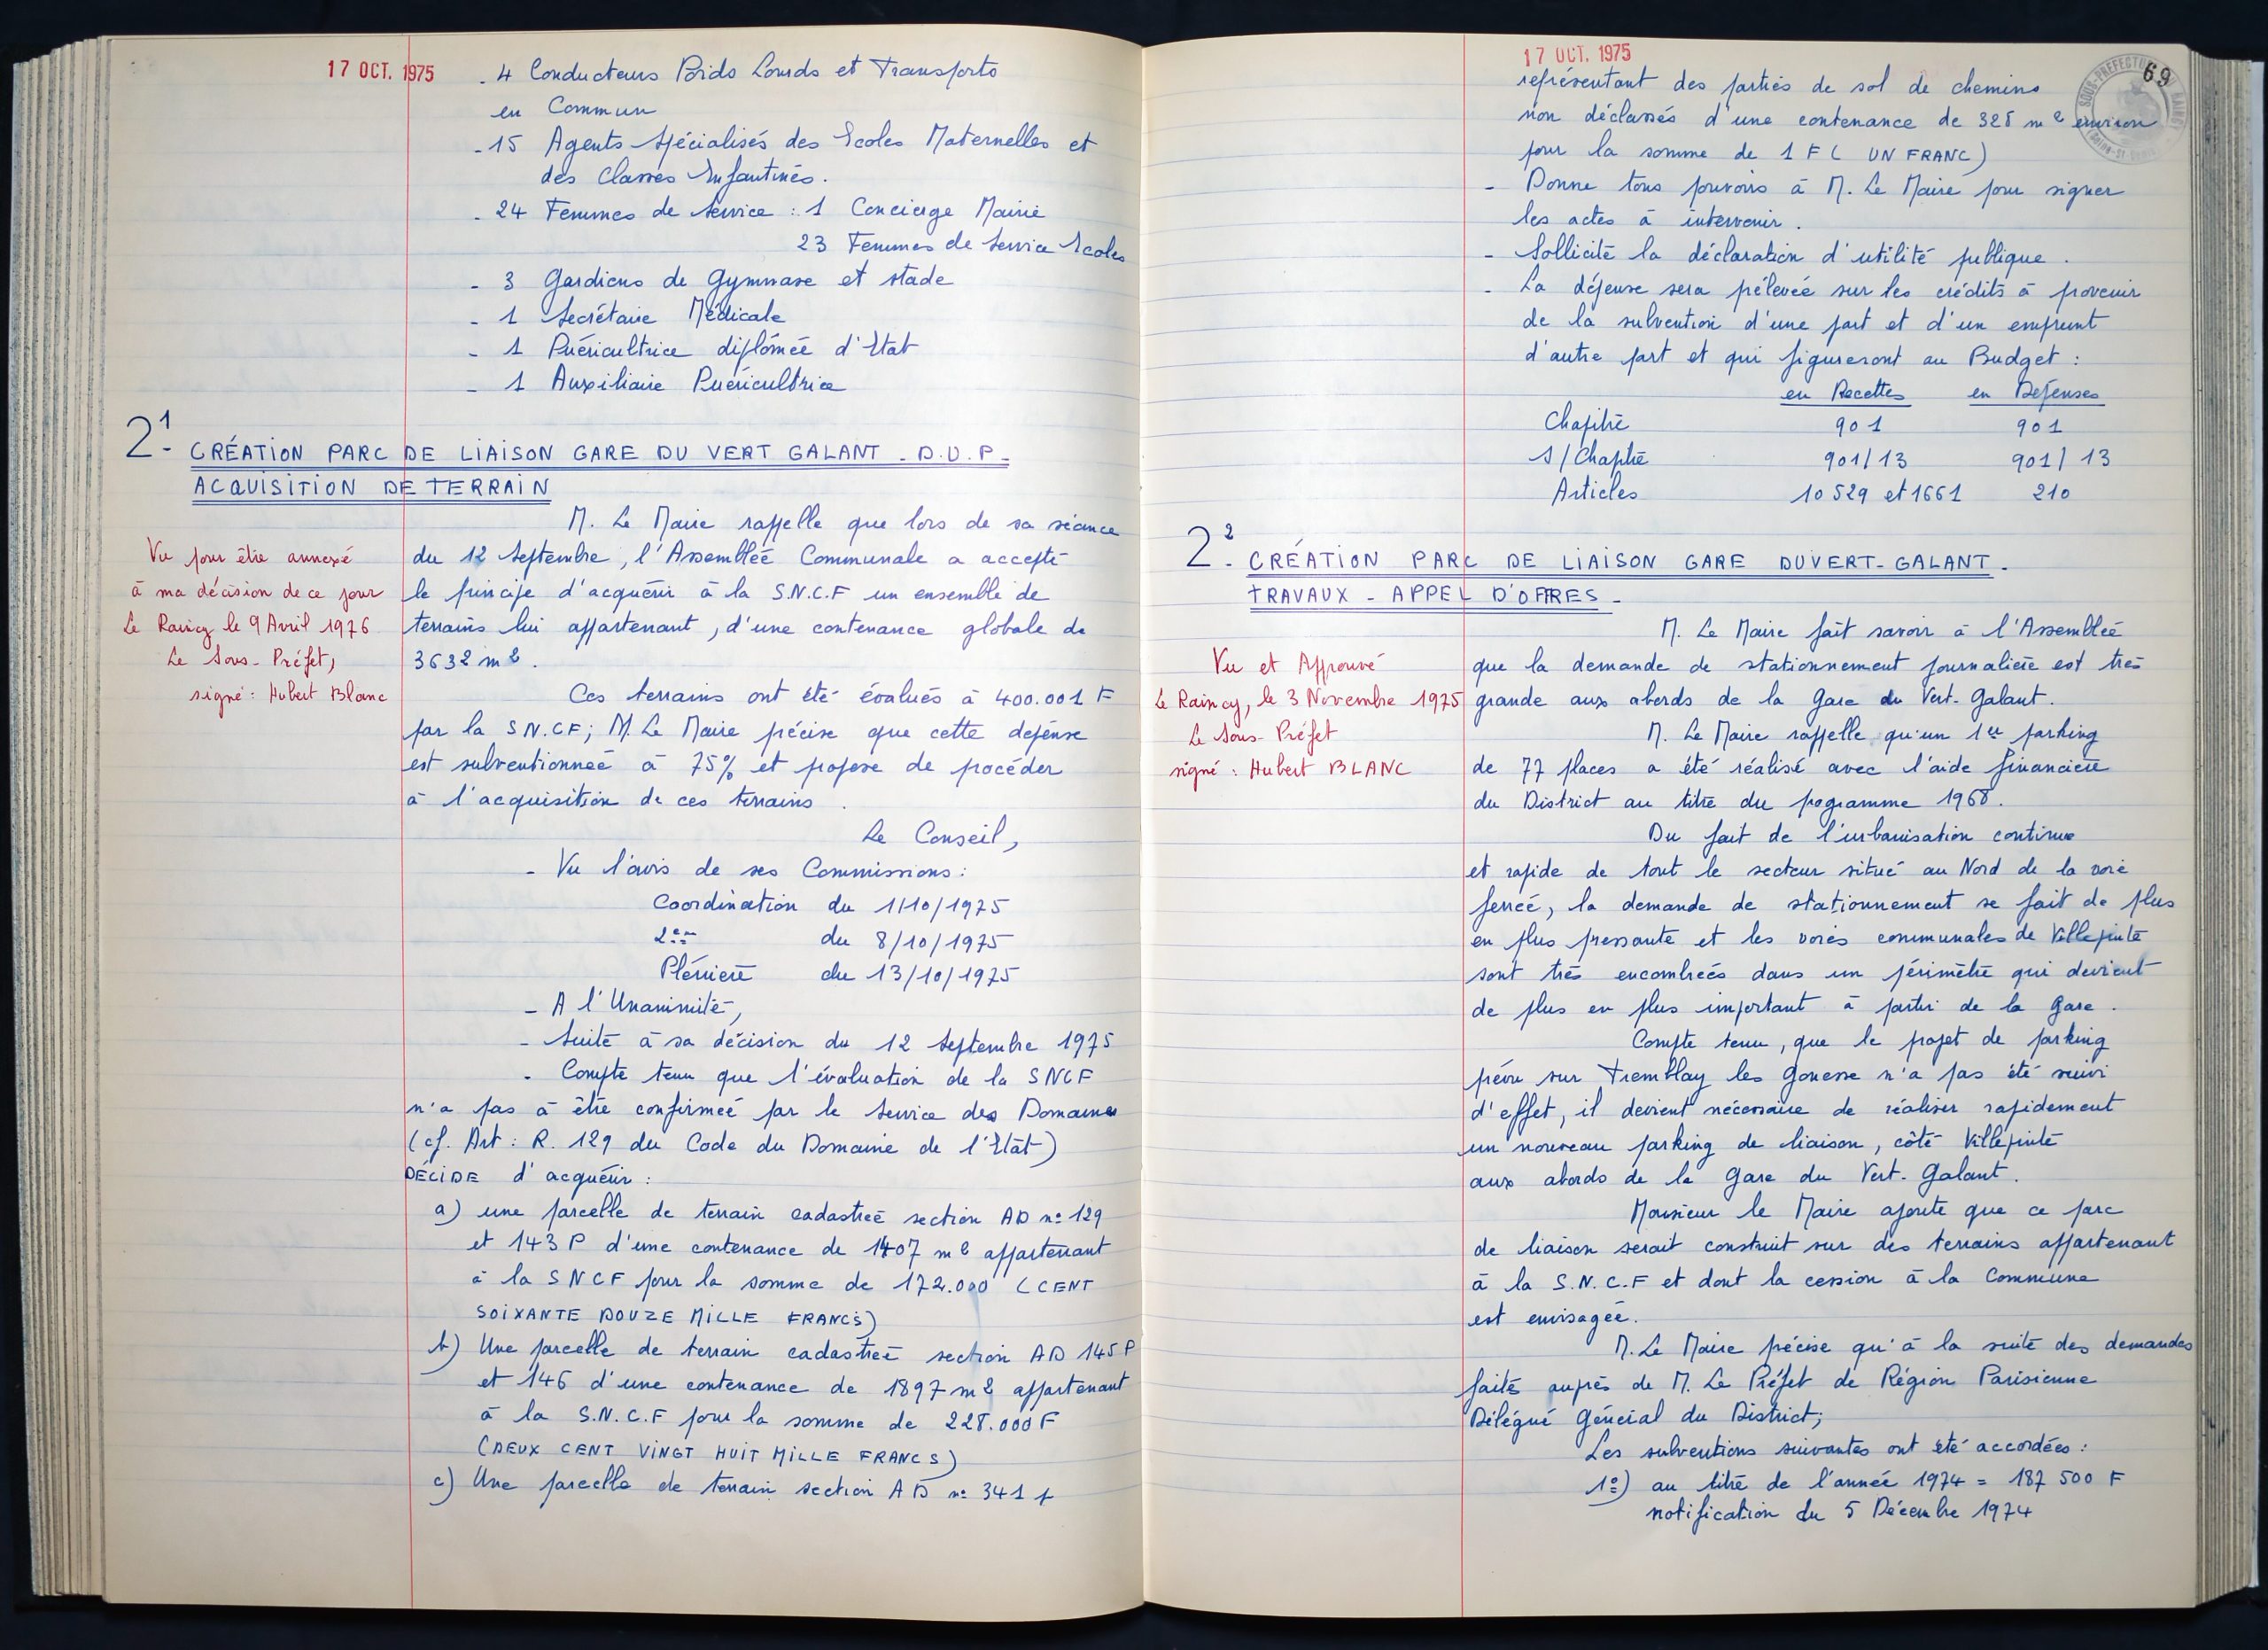 17 OCT. 1975
- 4 Conducteurs Poids Lourds et Transports
en Commun
- 15 Agents Spécialisés des Ecoles Maternelles et
des Classes Infantines.
- 24 Femmes de Service : 1 Concierge Mairie
23 Femmes de Service Ecoles
- 3 Gardiens de Gymnase et stade
- 1 Secrétaire Médicale
- 1 Puéricultrice diplômée d'Etat
- 1 Auxiliaire Puéricultrice
2¹ - CRÉATION PARC DE LIAISON GARE DU VERT GALANT - D.U.P -
ACQUISITION DE TERRAIN
M. Le Maire rappelle que lors de sa séance
du 12 Septembre, l'Assemblée Communale a accepté
le principe d'acquérir à la S.N.C.F un ensemble de
terrains lui appartenant, d'une contenance globale de
3632 m2.
Vu pour être annexé
à ma décision de ce jour
Le Raincy le 9 Avril 1976
Le Sous-Préfet,
signé : Hubert Blanc
Ces terrains ont été évalués à 400.001 F
par la SN.CF; M. Le Maire précise que cette dépense
est subventionnée à 75% et propose de procéder
à l'acquisition de ces terrains.
Le Conseil,
- Vu l'avis de ses Commissions :
Coordination du 1/10/1975
2ème du 8/10/1975
Plénière du 13/10/1975
- A l'Unanimité,
- Suite à sa décision du 12 Septembre 1975
- Compte tenu que l'évaluation de la SNCF
n'a pas à être confirmée par le Service des Domaines
(cf. Art : R. 129 du Code du Domaine de l'Etat)
DÉCIDE d'acquérir :
a) une parcelle de terrain cadastrée section AD n° 129
et 143 P d'une contenance de 1407 m2 appartenant
à la SNCF pour la somme de 172.000 (CENT
SOIXANTE DOUZE MILLE FRANCS)
b) Une parcelle de terrain cadastrée section AD 145 P
et 146 d'une contenance de 1897 m2 appartenant
à la S.N.C.F pour la somme de 228.000 F
(DEUX CENT VINGT HUIT MILLE FRANCS)
c) Une parcelle de terrain section AD n° 341 p
17 OCT. 1975
69
SOUS-PREFECTURE DU RAINCY
(Seine-St-Denis)
représentant des parties de sol de chemins
non déclassés d'une contenance de 328 m2 environ
pour la somme de 1 F ( UN FRANC)
- Donne tous pouvoirs à M. Le Maire pour signer
les actes à intervenir.
- Sollicite la déclaration d'utilité publique.
- La dépense sera prélevée sur les crédits à provenir
de la subvention d'une part et d'un emprunt
d'autre part et qui figureront au Budget :
en Recettes en Dépenses
Chapitre 901 901
S/Chapitre 901/13 901/13
Articles 10 529 et 1661 210
2² - CRÉATION PARC DE LIAISON GARE DU VERT-GALANT -
TRAVAUX - APPEL D'OFFRES -
M. Le Maire fait savoir à l'Assemblée
que la demande de stationnement journalière est très
grande aux abords de la Gare du Vert-Galant.
Vu et Approuvé
Le Raincy, le 3 Novembre 1975
Le Sous-Préfet
signé : Hubert BLANC
M. Le Maire rappelle qu'un 1er parking
de 77 places a été réalisé avec l'aide financière
du District au titre du pogramme 1968.
Du fait de l'urbanisation continue
et rapide de tout le secteur situé au Nord de la voie
ferrée, la demande de stationnement se fait de plus
en plus pressante et les voies communales de Villepinte
sont très encombrées dans un périmètre qui devient
de plus en plus important à partir de la Gare.
Compte tenu, que le projet de parking
prévu sur Tremblay les Gonesse n'a pas été suivi
d'effet, il devient nécessaire de réaliser rapidement
un nouveau parking de liaison, côté Villepinte
aux abords de la Gare du Vert-Galant.
Monsieur le Maire ajoute que ce parc
de liaison serait construit sur des terrains appartenant
à la S.N.C.F et dont la cession à la Commune
est envisagée.
M. Le Maire précise qu'à la suite des demandes
faites auprès de M. Le Préfet de Région Parisienne
Délégué Général du District;
Les subventions suivantes ont été accordées :
1°) au titre de l'année 1974 = 187 500 F
notification du 5 Décembre 1974